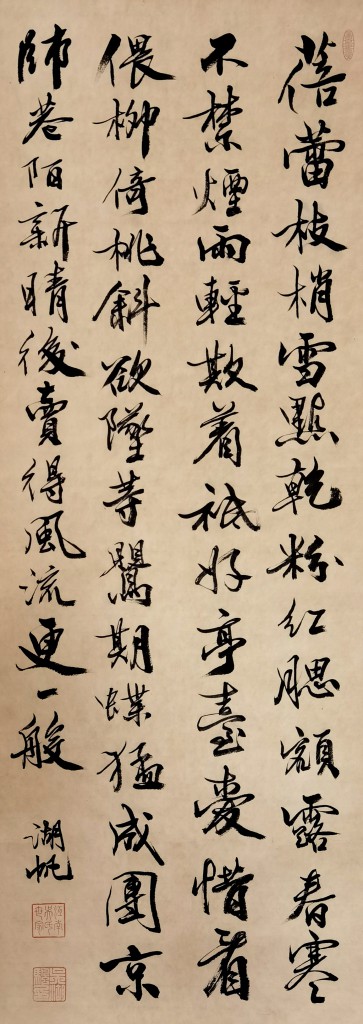 蓓蕾枝梢雪點乾粉紅腮額露春寒
不禁煙雨輕欺着祇好亭臺愛惜看
偎柳倚桃斜欲墜等鶯期蝶猛成團京
師巷陌新晴後賣得風流更一般
湖帆